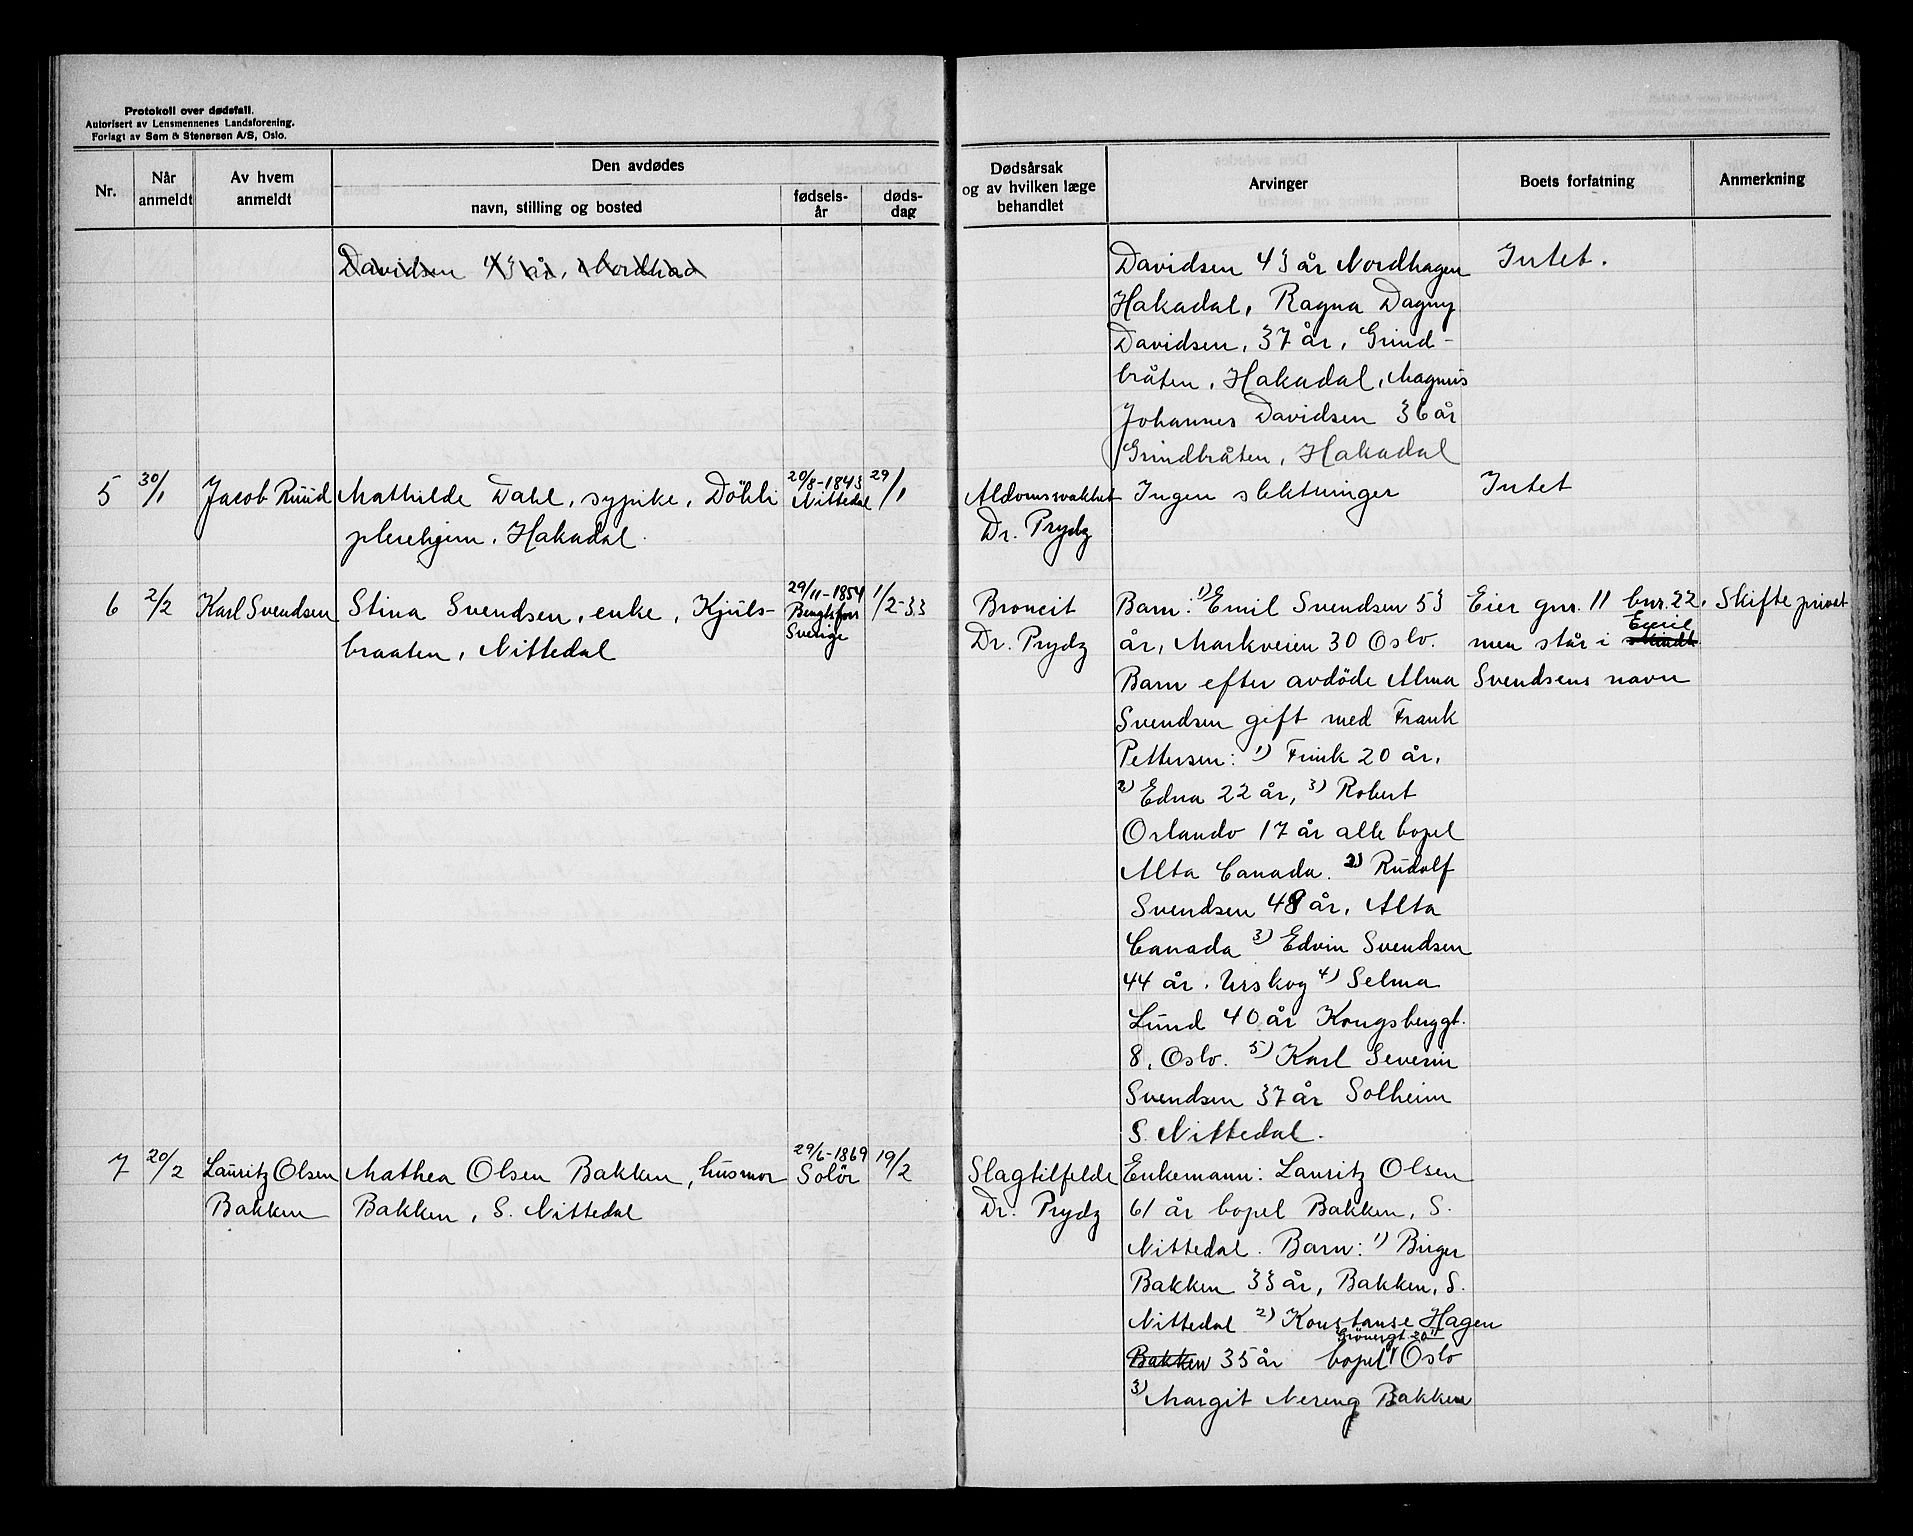 Protokoll over dødsfall.
Autorisert av Lensmennenes Landsforening.
Forlagt av Sem & Stenersen A/S, Oslo.
Nr.
Når anmeldt
Av hvem anmeldt
Den avdødes
navn, stilling og bosted
fødsels-år
døds-dag
Dødsårsak
og av hvilken læge
behandlet
Arvinger
Boets forfatning
Anmerkning
Davidsen 43 år, Nordhad
Davidsen 43 år Nordhagen
Hakadal, Ragna Dagny
Davidsen, 37 år, Grind-
bråten, Hakadal, Magnus
Johannes Davidsen 36 år
Grindbråten, Hakadal
Intet.
5 30/1 Jacob Ruud Mathilde Dahl, sypike, Döhli
pleiehjem, Hakadal.
20/8-1843
Nittedal
29/1
Aldomssvakhet
Dr. Prydz
Ingen slektninger
Intet
6 2/2 Karl Svendsen Stina Svendsen, enke, Kjuls-
braaten, Nittedal
29/11-1854
Bengtsfors
Sverige
1/2-33
Broncit
Dr. Prydz
Barn: 1) Emil Svendsen 53
år, Markveien 30 Oslo.
Barn efter avdöde Alma
Svendsen gift med Frank
Pettersen: 1) Frank 20 år,
2) Edna 22 år, 3) Robert
Orlando 17 år alle bopel
Alta Canada. 2) Rudolf
Svendsen 48 år, Alta
Canada 3) Edvin Svendsen
44 år. Urskog 4) Selma
Lund 40 år Kongsberggt.
8, Oslo. 5) Karl Severin
Svendsen 37 år Solheim
S. Nittedal.
Eier gnr. 11 bnr. 22,
men står i Emil
Svendsens navn
Skifte privat
7 20/2 Lauritz Olsen
Bakken
Mathea Olsen Bakken, husmor
Bakken, S. Nittedal
29/6-1869
Solör
19/2
Slagtilfelde
Dr. Prydz
Enkemann: Lauritz Olsen
61 år bopel Bakken, S.
Nittedal. Barn: 1) Birger
Bakken 33 år, Bakken, S.
Nittedal 2) Konstanse Hagen
Bakken 35 år bopel Grönergt. 20 II Oslo
3) Margit Nereng Bakken